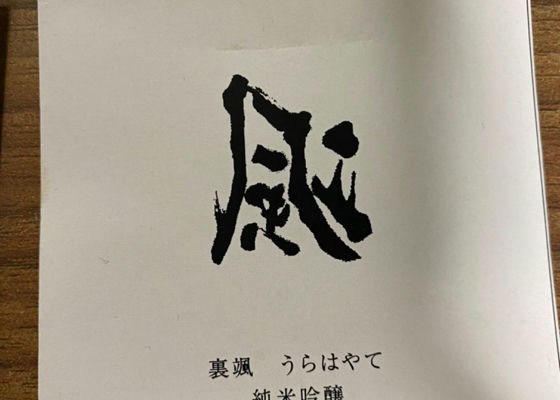 颯
裏颯　うらはやて
純米吟醸